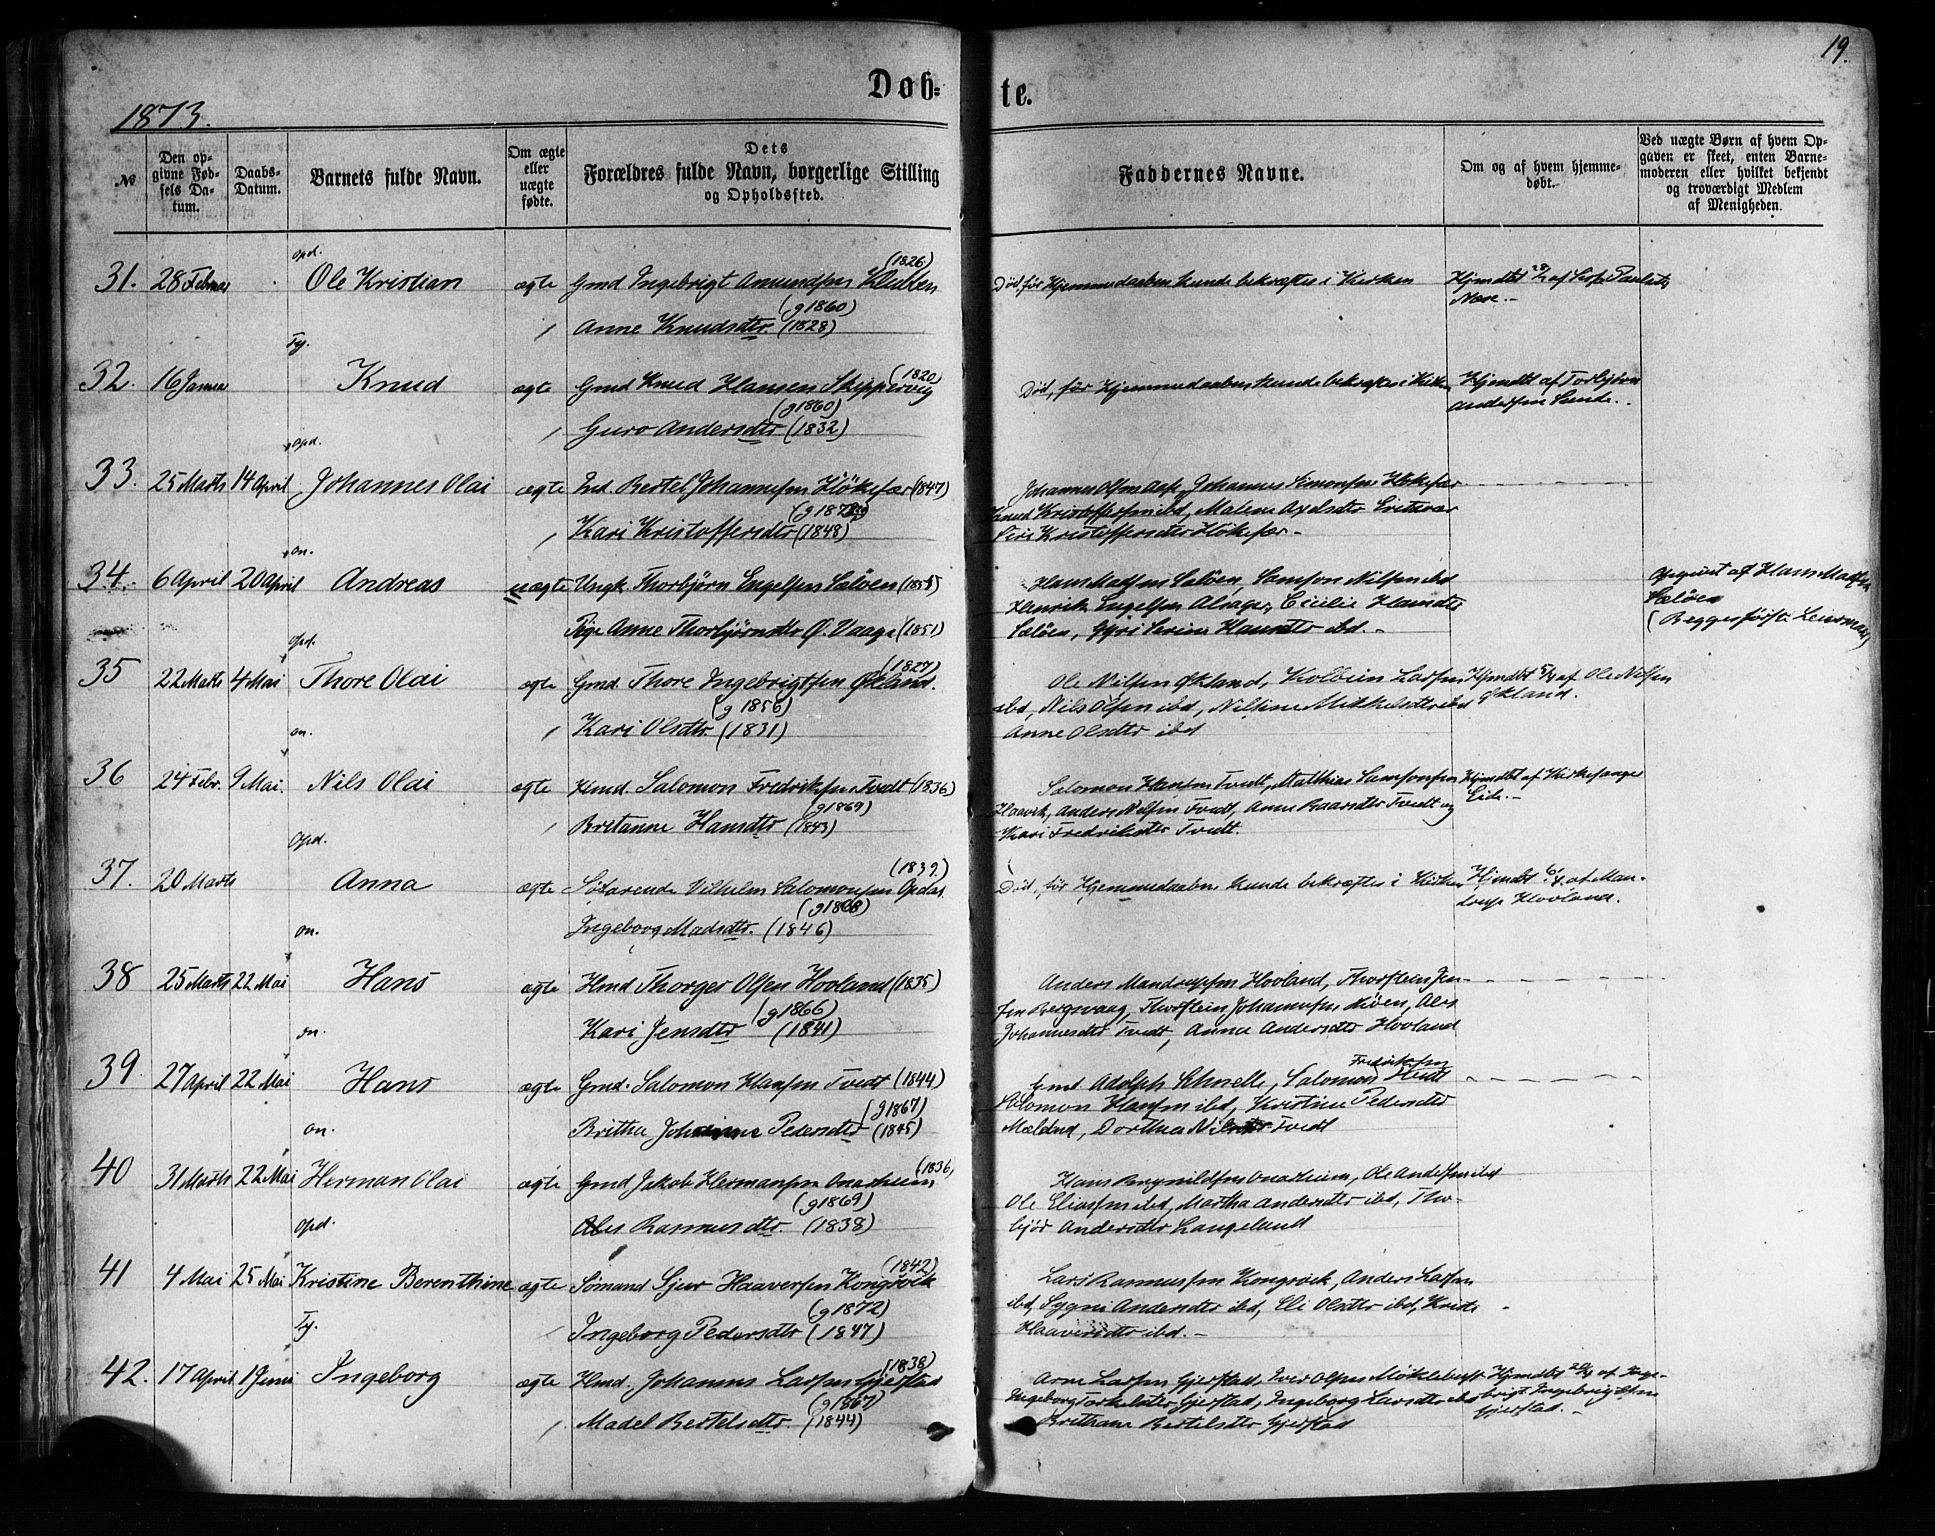 19.
1873.
Døb-
te.
№
Den op-
givne Fød-
sels Da-
tum.
Daabs-
Datum.
Barnets fulde Navn.
Om ægte
eller
uægte
fødte.
Dets
Forældres fulde Navn, borgerlige Stilling
og Opholdssted.
Faddernes Navne.
Om og af hvem hjemme-
døbt.
Ved uægte Børn af hvem Op-
gaven er skeet, enten Barne-
moderen eller hvilket bekjendt
og troværdigt Medlem
af Menigheden.
opd.
31. 28 Februar Ole Kristian ægte Gmd Ingebrigt Amundsen (1826)
Anne Knudsdtr. (g 1860) (1828)
Død, før Hjemmedaaben kunde bekræftes i Kirken
Hjmdbt af
Næse.
Ty.
32. 16 Januar Knud ægte Gmd Knud Hansen Skippervig (1820)
Guro Andersdtr (g 1860) (1832)
Død, før Hjemmedaaben kunde bekræftes i Kirken
Hjemdbt af Torbjørn
Andersen Sunde.
opd.
33. 25 Marts 14 April Johannes Olai ægte Ind. Bertel Johannesen Høkefær (1847)
Kari Kristoffersdtr (1848)
Johannes Olsen Johannes Simonsen Høkefær
Knud Kristoffersen ibd, Malene Axelsdtr
Siri Kristoffersdtr Høkefær.
on.
34. 6 April 20 April Andreas uægte Ungk. Thorbjørn Engelsen Sæløen
Pige Anne Thorbjørnsdtr Ø. Vaage (1851)
Hans Madsen Sæløen, Samson Nilsen ibd
Henrik Engelsen Alsager, Cicilie Hansdtr
Sæløen, Gjøri Serine Hansdtr ibd.
Opgivet af Hans Madsen
Sæløen
(Begges først. Leiermaal)
opd.
35 22 Marts 4 Mai Thore Olai ægte Gmd. Thore Ingebrigtsen Økland. (1827)
Kari Olsdtr (g 1856) (1831)
Ole Nilsen Økland, Kolbein Larsen
ibd, Nils Olsen ibd, Niltine Mikkelsdtr ibd
Anne Olsdtr ibd
Hjmdbt af Ole Nilsen
Økland.
on.
36 24 Febr. 9 Mai. Nils Olai ægte Hmd. Salomon Fredriksen Tvedt (1836)
Britanne Hansdtr (g 1869) (1843)
Salomon Hansen Tvedt, Matthias Samsonsen
Haavik, Anders Nilsen Tvedt, Anne Baarsdtr Tvedt og
Kari Fredriksdtr Tvedt.
Hjmdbt af Kirkesanger
Eide.
opd.
37. 20 Marts Anna ægte Søfarende Vilhelm Salomonsen Opdal (1839)
Ingeborg Madsdtr. (g 1868) (1846)
Død, før Hjemmedaaben kunde bekræftes i Kirken
Hjmdbt 6/4 af Man-
drup Hovland.
on.
38 25 Marts 22 Mai Hans ægte Hmd Thorger Olsen Hovland (1835)
Kari Jensdtr (g 1866) (1841)
Anders Mandrupsen Hovland, Thorstein Jen-
sen Bergsvaag, Thorstein Johannesen Røen, Ales
Johannesdtr Tvedt, Anna Andersdtr Hovland
on.
39. 27 April 22 Mai Hans ægte Gmd. Salomon Hansen Tvedt (1844)
Britha Johanne Pedersdtr (g 1867) (1845)
Gmd Adolph Schnelle, Salomon Fredriksen Tvedt
Salomon Hansen ibd, Kristine Pedersdtr
Mæland, Dorthea Nilsdtr Tvedt
on.
40 31 Marts 22 Mai Herman Olai ægte Gmd Jakob Hermansen Onarheim (1836)
Ales Rasmusdtr. (g 1869) (1838)
Hans Brynildsen Onarheim, Ole Andersen ibd
Ole Eliassen ibd, Martha Andersdtr ibd, Thor-
bjør Andersdtr Langeland
opd.
41 4 Mai 25 Mai Kristine Berenthine ægte Sømand Sjur Haaversen Kongsvik (1842)
Ingeborg Pedersdtr (g 1872) (1847)
Lars Rasmussen Kongsvik, Anders Larsen
ibd, Sygni Andersdtr ibd, Eli Olsdtr ibd, Kristi
Haaversdtr ibd.
Ty.
42. 17 April 1 Juni Ingeborg ægte Hmd. Johannes Larsen Gjerstad (1838)
Madel Bertelsdtr. (g 1867) (1844)
Arne Larsen Gjerstad, Iver Olsen Møklebust
Ingeborg Torkelsdtr Gjerstad, Ingeborg Larsdtr ibd
Brithane Bertelsdtr Gjerstad
Hjmdbt af Inge-
brigt Ingebrigtsen
Gjerstad.